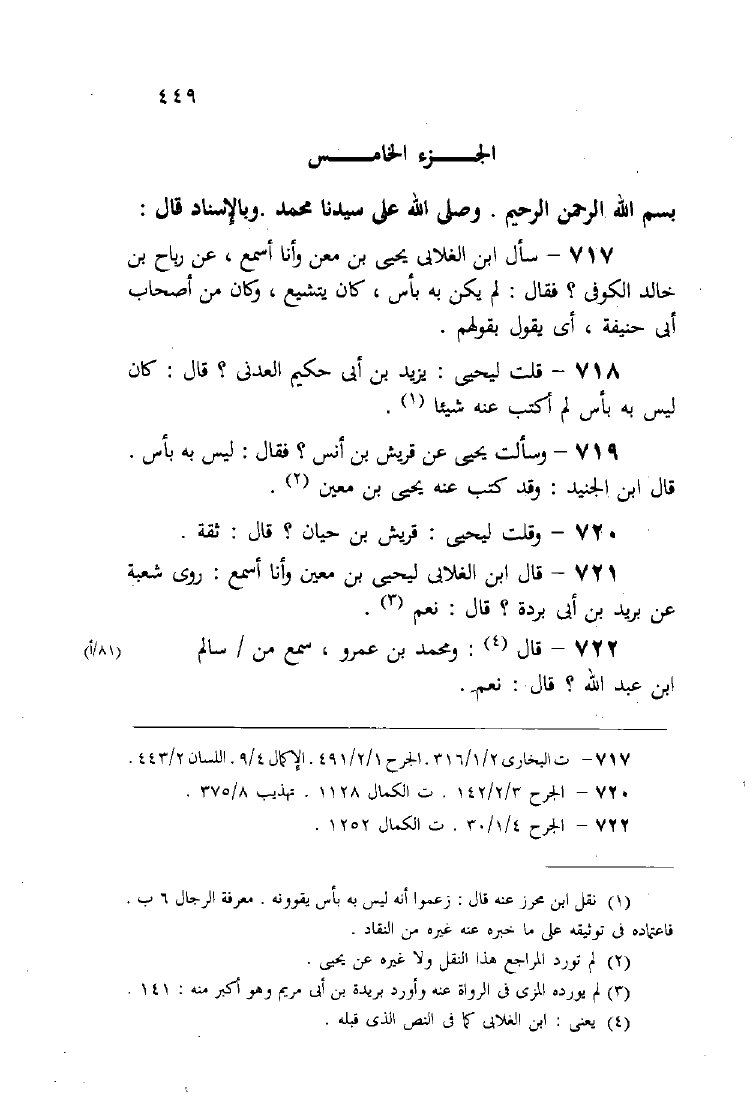 ٤٤٩
الجـــــزء الخامـــــس
بسم الله الرحمن الرحيم . وصلى الله على سيدنا محمد .وبالإسناد قال :
٧١٧ – سأل ابن الغلابى يحيى بن معن وأنا أسمع ، عن رباح بن
خالد الكوفى ؟ فقال : لم يكن به بأس ، كان يتشيع ، وكان من أصحاب
أبى حنيفة ، أى يقول بقولهم .
٧١٨ – قلت ليحيى : يزيد بن أبى حكيم العدنى ؟ قال : كان
ليس به بأس لم أكتب عنه شيئا (١) .
٧١٩ – وسألت يحيى عن قريش بن أنس ؟ فقال : ليس به بأس .
قال ابن الجنيد : وقد كتب عنه يحيى بن معين (٢) .
٧٢٠ – وقلت ليحيى : قريش بن حيان ؟ قال : ثقة .
٧٢١ – قال ابن الغلابى ليحيى بن معين وأنا أسمع : روى شعبة
عن بريد بن أبى بردة ؟ قال : نعم (٣) .
٧٢٢ – قال (٤) : ومحمد بن عمرو ، سمع من / سالم (٨١/أ)
ابن عبد الله ؟ قال : نعم .
٧١٧– ت البخارى ٣١٦/١/٢. الجرح ٤٩١/٢/١. الإكمال ٩/٤. اللسان ٤٤٣/٢ .
٧٢٠ – الجرح ١٤٢/٢/٣ . ت الكمال ١١٢٨ . تهذيب ٣٧٥/٨ .
٧٢٢ – الجرح ٣٠/١/٤ . ت الكمال ١٢٥٢ .
(١) نقل ابن محرز عنه قال : زعموا أنه ليس به بأس يقوونه . معرفة الرجال ٦ ب .
فاعتماده فى توثيقه على ما خبره عنه غيره من النقاد .
(٢) لم تورد المراجع هذا النقل ولا غيره عن يحيى .
(٣) لم يورده المزى فى الرواة عنه وأورد بريدة بن أبى مريم وهو أكبر منه : ١٤١ .
(٤) يعنى : ابن الغلابى كما فى النص الذى قبله .